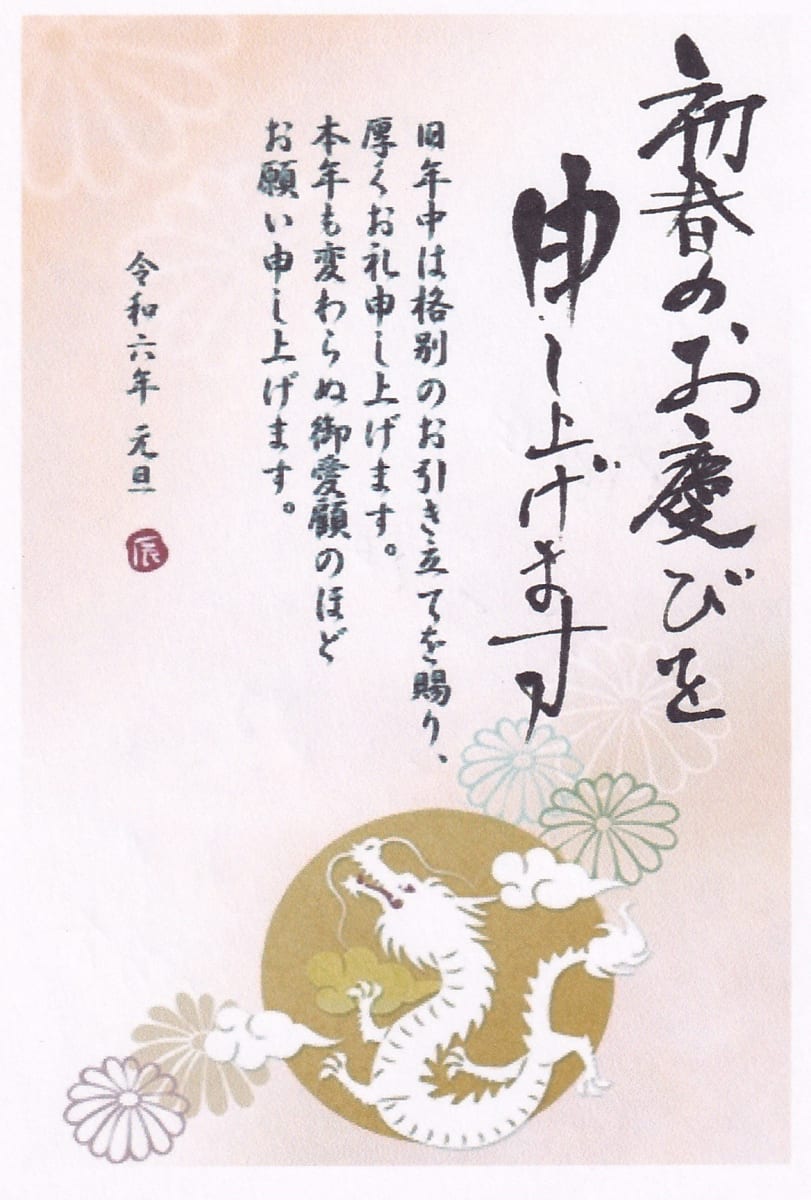 初春のお慶びを
申し上げます
旧年中は格別のお引き立てを賜り、
厚くお礼申し上げます。
本年も変わらぬ御愛顧のほど
お願い申し上げます。
令和六年 元旦
辰